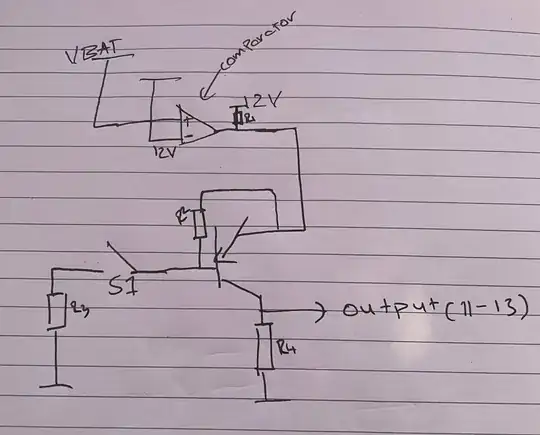 comparator
VBAT
12V
R1
+
-
12V
R2
S1
R3
output(11-13)
R4